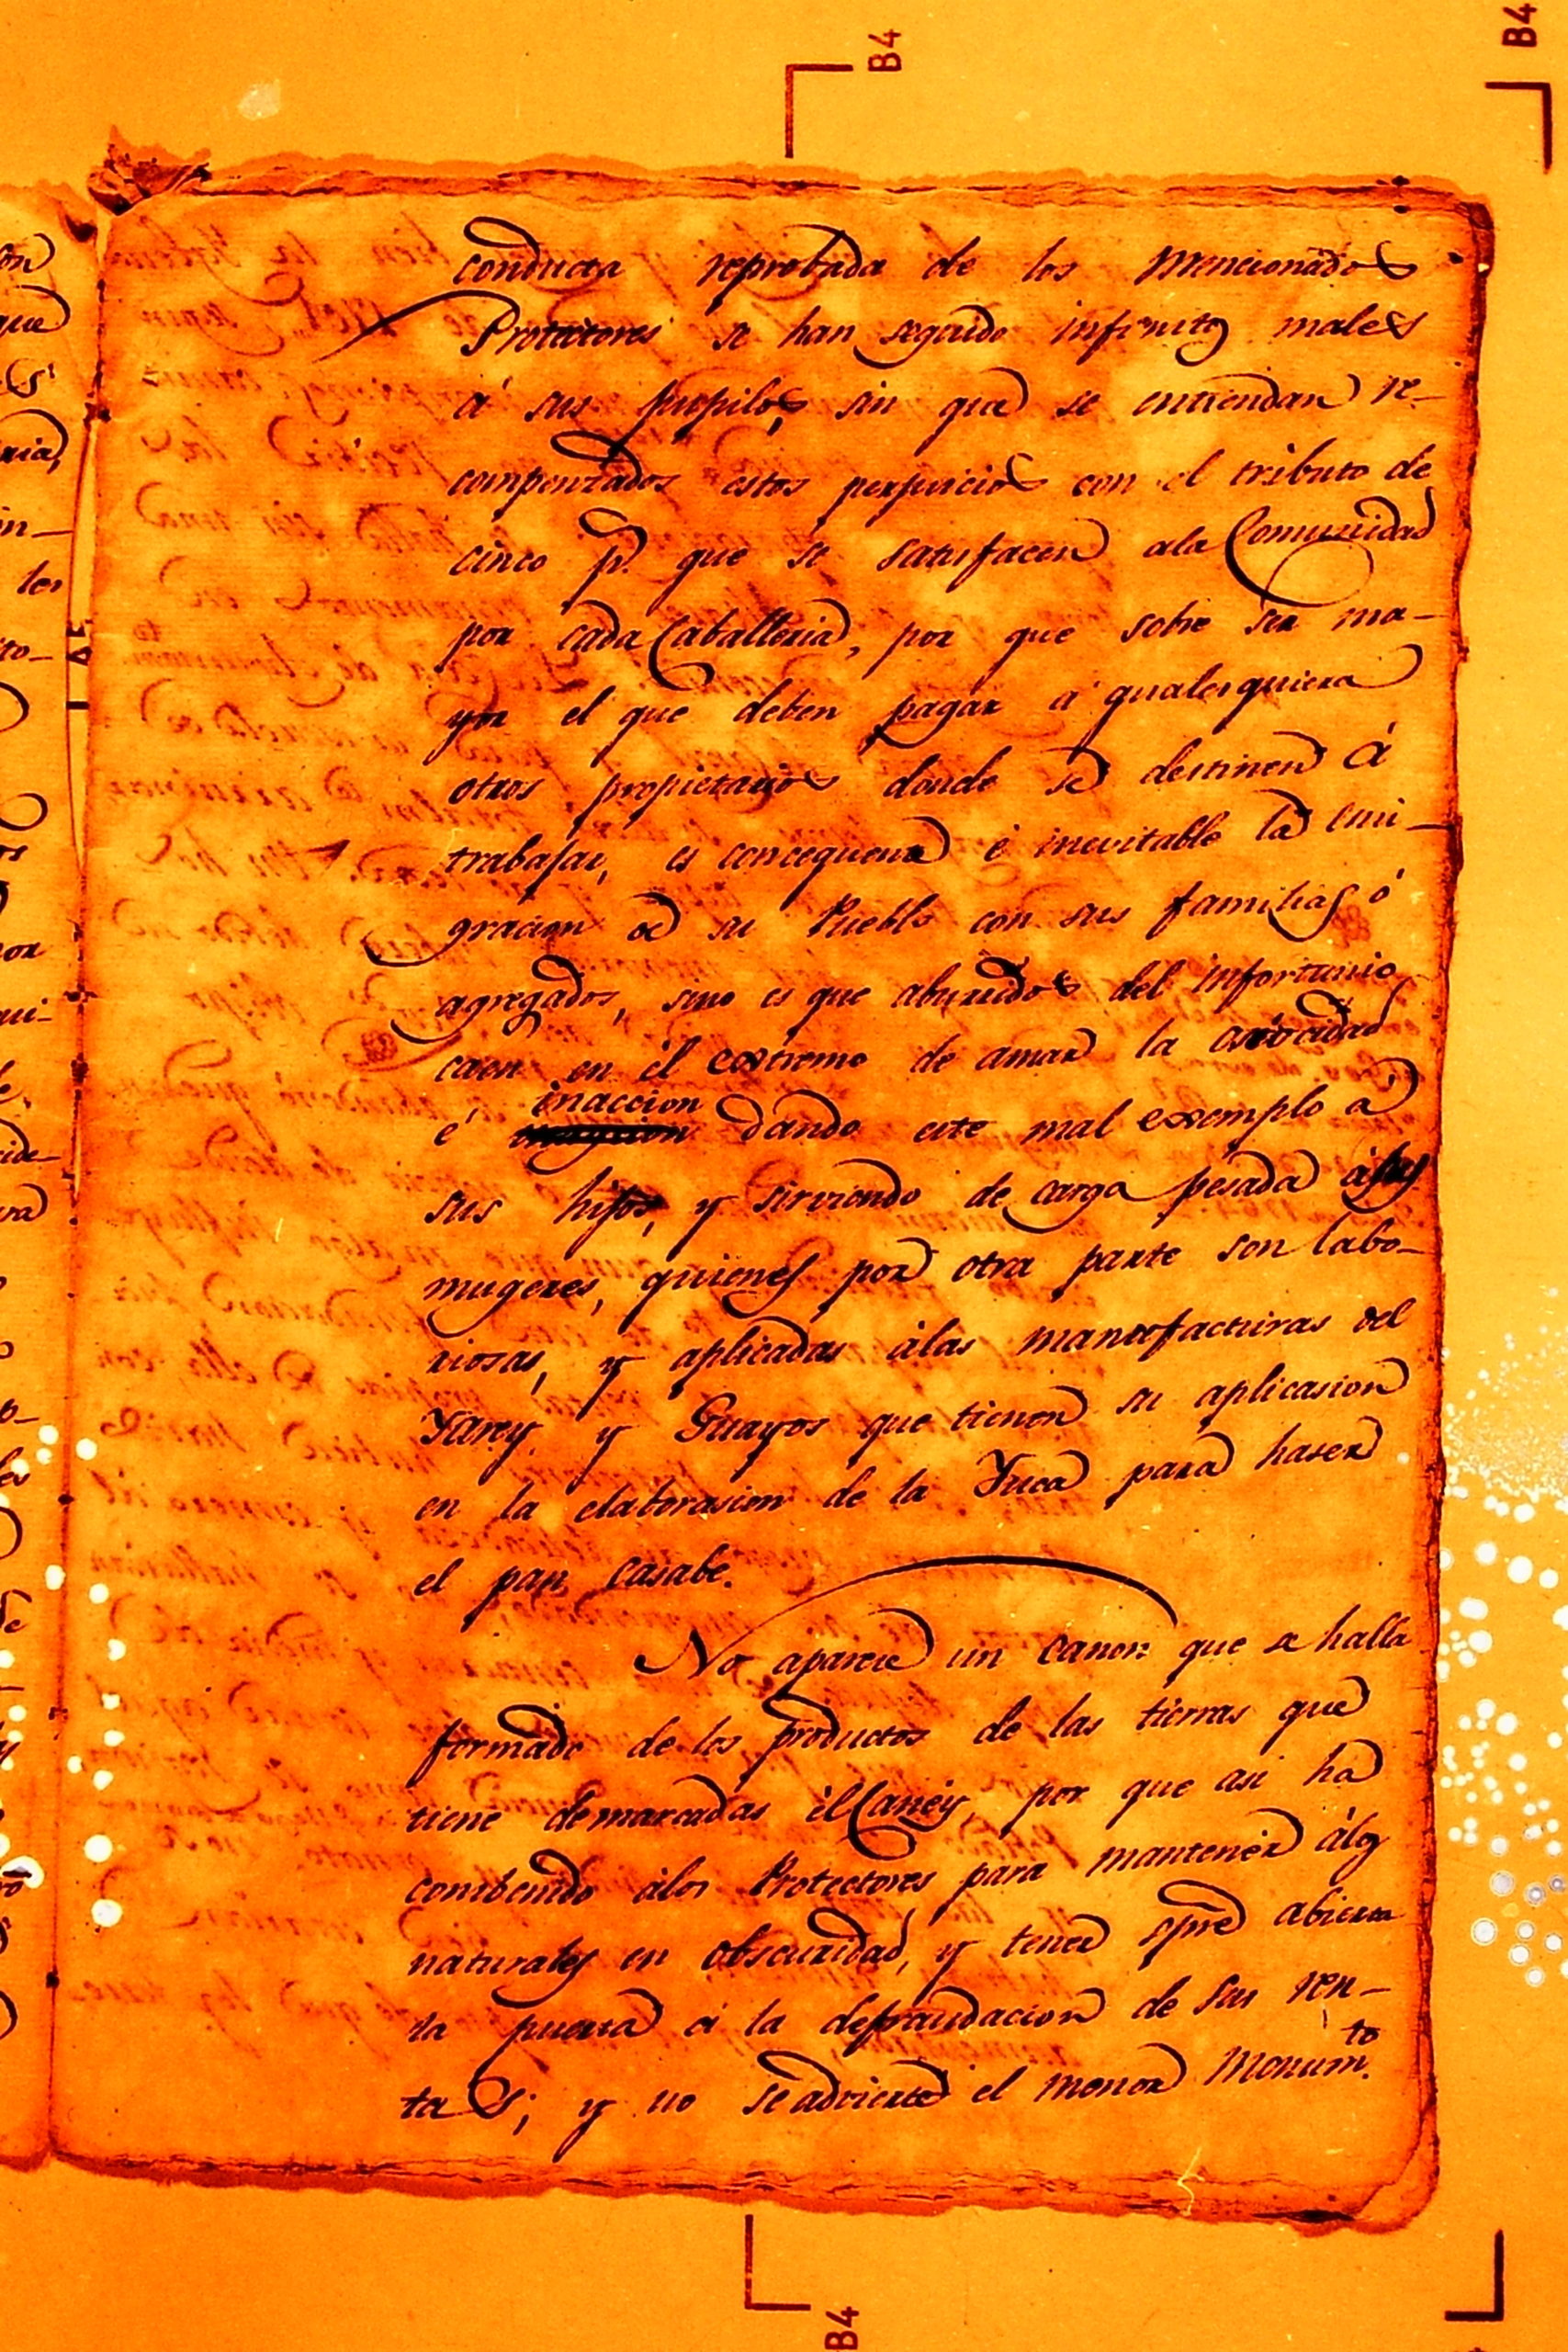 B4
B4
conducta reprobada de los Mencionados
Protectores se han seguido infinitos males
á sus pupilos, sin que se entiendan re-
compenzados estos perjuicios con el tributo de
cinco p.s que se satisfacen ala Comunidad
por cada Caballeria, por que sobre ser ma-
yor el que deben pagar á qualesquiera
otros propietarios donde se destinen á
trabajar, es concequente é inevitable la emi-
gracion de su Pueblo con sus familias ó
agregados, sino es que aburridos del infortunio
caen en el extremo de amar la ociocidad
é inaccion dando este mal exemplo a
sus hijos, y sirviendo de carga pesada á sus
mugeres, quienes por otra parte son labo-
riosas, y aplicadas álas manufacturas del
Yarey y Guayos que tienen su aplicasion
en la elaborasion de la Yuca para haser
el pan casabe.
No aparece un canon que se halla
formado de los productos de las tierras que
tiene demarcadas él Caney, por que asi ha
combenido álos Protectores para mantener álos
naturales en obscuridad, y tener spre abierta
la puerta á la defraudacion de sus ren-
tas; y no se advierte el menor Monum.to
B4